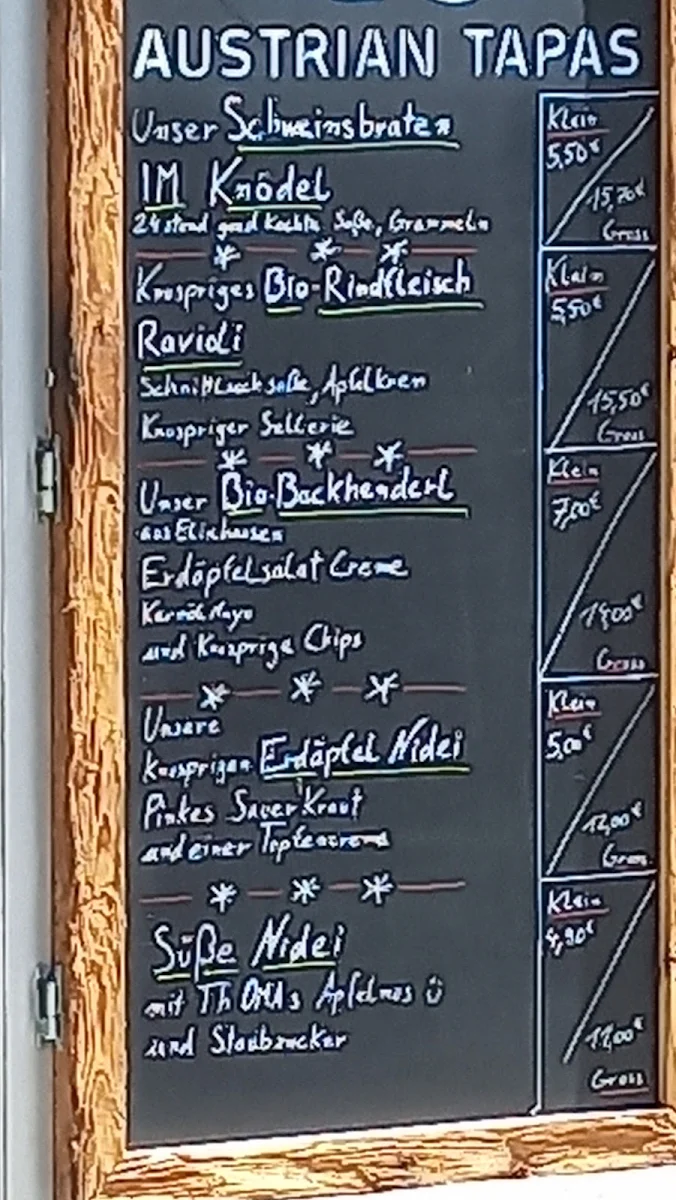 AUSTRIAN TAPAS
Unser Schweinsbraten
IM Knödel
Soße, Grammeln
Klein
5,50€
15,70€
Gross
Knuspriges Bio-Rindfleisch
Ravioli
Schnittlauchsoße, Apfelkren
Knuspriger Sellerie
Klein
5,50€
15,50€
Gross
Unser Bio-Backhenderl
aus
Erdäpfelsalat Creme
Kernöl Mayo
und Knusprige Chips
Klein
7,00€
Gross
Unsere
knusprigen Erdäpfel Nidei
Pinkes SauerKraut
und einer Topfencreme
Klein
5,00€
12,00€
Gross
Süße Nidei
mit ThOMAs Apfelmus ü
und Staubzucker
Klein
4,90€
11,00€
Gross